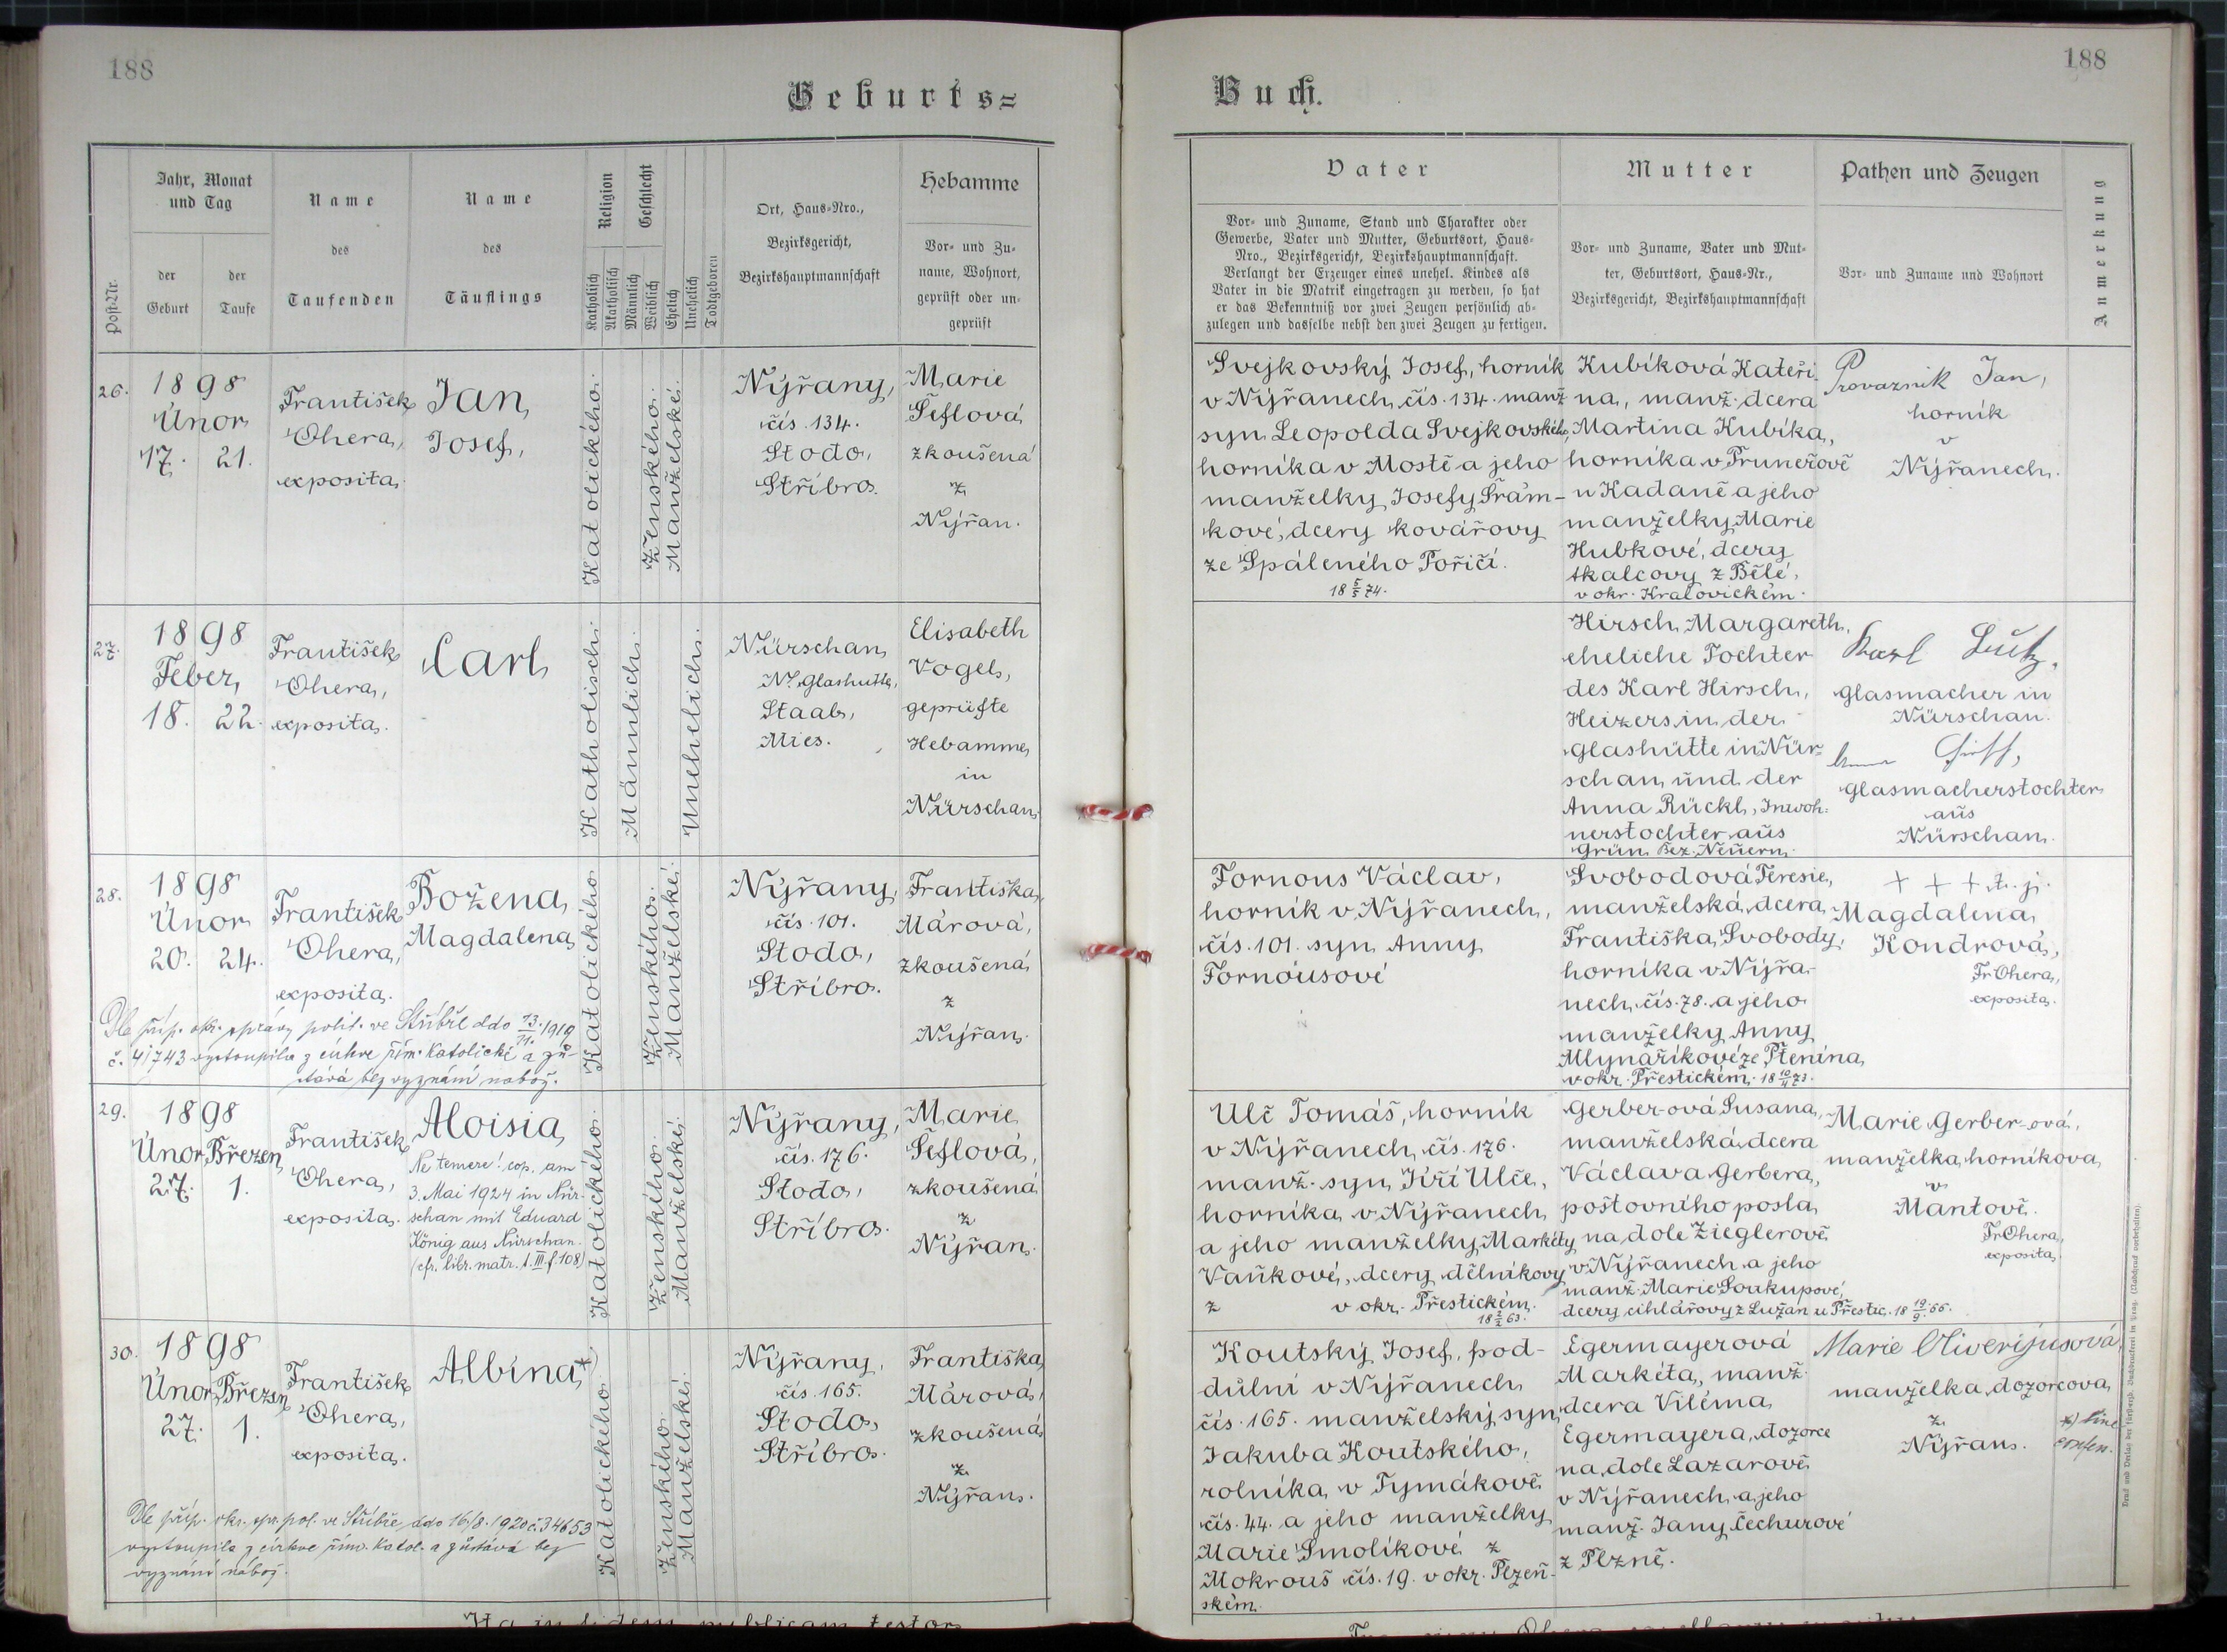 188
Geburts=
Post-Nr.
Jahr, Monat
und Tag
der
Geburt
der
Taufe
Name
des
Taufenden
Name
des
Täuflings
Religion
Katholisch
Akatholisch
Geschlecht
Männlich
Weiblich
Ehelich
Unehelich
Todtgeboren
Ort, Haus=Nro.,
Bezirksgericht,
Bezirkshauptmannschaft
Hebamme
Vor= und Zu=
name, Wohnort,
geprüft oder un=
geprüft
26.
1898
Únor
17. 21.
František
Ohera,
exposita.
Jan,
Josef,
Katolického.
Ženského.
Manželské.
Nýřany,
čís. 134.
Stodo,
Stříbro.
Marie
Šeflová
zkoušená
z
Nýřan.
27.
1898
Feber,
18. 22.
František
Ohera,
exposita.
Carl
Katholisch.
Männlich.
Unehelich.
Nürschan
No. Glashütte,
Staab,
Mies.
Elisabeth
Vogel,
geprüfte
Hebamme
in
Nürschan
28.
1898
Únor
20. 24.
František
Ohera,
exposita.
Božena
Magdalena
Katolického
Ženského.
Manželské.
Nýřany,
čís. 101.
Stodo,
Stříbro.
Františka
Márová,
zkoušená
z
Nýřan.
Dle příp. okr. správy polit. ve Stříbře ddo 13./11. 1919
č. 41743 vystoupila z církve řím. katolické a zů-
stává bez vyznání nábož.
29.
1898
Únor Březen
27. 1.
František
Ohera,
exposita.
Aloisia
Ne temere! cop. am
3. Mai 1924 in Nür-
schan mit Eduard
König aus Nürschan.
(cfr. libr. matr. t. III. f. 108)
Katolického.
Ženského.
Manželské.
Nýřany,
čís. 176.
Stodo,
Stříbro.
Marie
Šeflová,
zkoušená
z
Nýřan.
30.
1898
Únor Březen
27. 1.
František
Ohera,
exposita.
Albína*)
Katolického.
Ženského.
Manželské.
Nýřany,
čís. 165.
Stodo,
Stříbro.
Františka
Márová,
zkoušená
z
Nýřan.
Dle příp. okr. spr. pol. ve Stříbře ddo 16./8. 1920 č. 34653
vystoupila z církve řím. katol. a zůstává bez
vyznání nábož.
Ita in fidem publicam testor
188
Buch.
Vater
Vor= und Zuname, Stand und Charakter oder
Gewerbe, Vater und Mutter, Geburtsort, Haus=
Nro., Bezirksgericht, Bezirkshauptmannschaft.
Verlangt der Erzeuger eines unehel. Kindes als
Vater in die Matrik eingetragen zu werden, so hat
er das Bekenntniß vor zwei Zeugen persönlich ab=
zulegen und dasselbe nebst den zwei Zeugen zu fertigen.
Mutter
Vor= und Zuname, Vater und Mut=
ter, Geburtsort, Haus=Nr.,
Bezirksgericht, Bezirkshauptmannschaft
Pathen und Zeugen
Vor= und Zuname und Wohnort
Anmerkung
Svejkovský Josef, horník
v Nýřanech čís. 134. manž
syn Leopolda Svejkovského,
horníka v Mostě a jeho
manželky Josefy Šrám-
kové, dcery kovářovy
ze Spáleného Poříčí.
18 5/5 74.
Kubíková Kateři-
na, manž. dcera
Martina Kubíka,
horníka v Prunéřově
u Kadaně a jeho
manželky Marie
Hubkové, dcery
tkalcovy z Bělé,
v okr. Kralovickém.
Provazník Jan,
horník
v
Nýřanech.
Hirsch Margareth,
eheliche Tochter
des Karl Hirsch,
Heizers in der
Glashütte in Nür-
schan und der
Anna Rückl, Inwoh-
nerstochter aus
Grün Bez. Neuern.
Karl Lutz,
Glasmacher in
Nürschan.
Glasmacherstochter
aus
Nürschan.
Fornous Václav,
horník v Nýřanech,
čís. 101. syn Anny
Fornousové
Svobodová Teresie,
manželská dcera
Františka Svobody,
horníka v Nýřa-
nech čís. 78. a jeho
manželky Anny
Mlynaříkové ze Ptenína,
v okr. Přestickém. 18 10/4 73.
+ + + t. j.
Magdalena
Kondrová,
Fr. Ohera,
exposita.
Ulč Tomáš, horník
v Nýřanech čís. 176.
manž. syn Jiří Ulče,
horníka v Nýřanech
a jeho manželky Markéty
Vaňkové, dcery dělníkovy
z v okr. Přestickém.
18 2/2 63.
Gerber-ová Susana,
manželská dcera
Václava Gerbera,
poštovního posla
na dole Zieglerově
v Nýřanech a jeho
manž. Marie Soukupové,
dcery cihlářovy z Lužan u Přestic. 18 19/9 66.
Marie Gerber-ová,
manželka horníkova
v
Mantově.
Fr. Ohera,
exposita.
Koutský Josef, pod-
důlní v Nýřanech
čís. 165. manželský syn
Jakuba Koutského,
rolníka v Tymákově
čís. 44. a jeho manželky
Marie Smolíkové z
Mokrouš čís. 19. v okr. Plzeň-
ském.
Egermayerová
Markéta, manž.
dcera Viléma
Egermayera, dozorce
na dole Lazarově
v Nýřanech a jeho
manž. Jany Čechurové
z Plzně.
Marie Oliverijusová,
manželka dozorcova
z
Nýřan.
*) sine
confes.